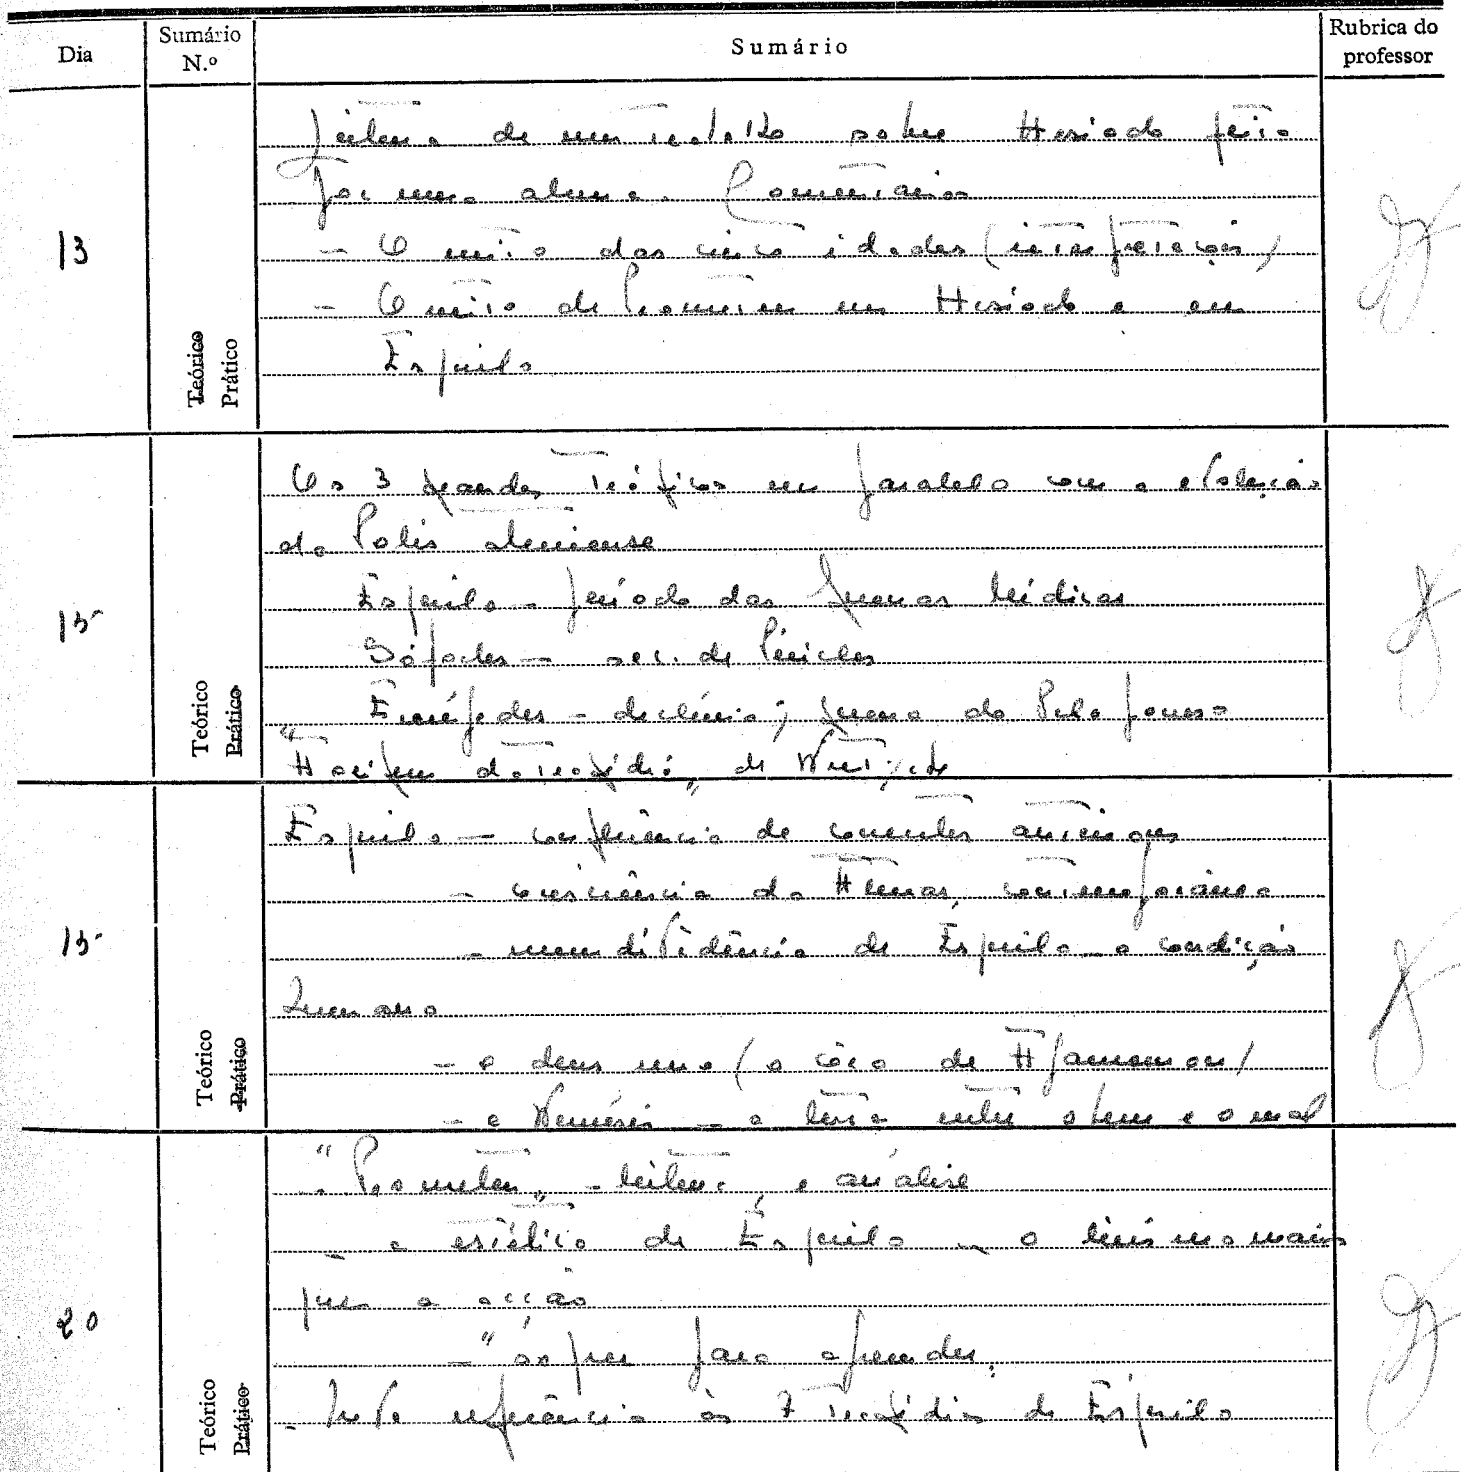 Dia
Sumário N.º
Sumário
Rubrica do professor
13
Teórico
Prático
Leitura de um trabalho sobre Hesíodo feito
por uma aluna. Comentários
- O mito das cinco idades (interpretações)
- O mito de Prometeu em Hesíodo e em
Ésquilo
15
Teórico
Prático
Os 3 grandes trágicos em paralelo com a evolução
da Polis ateniense
Ésquilo - período das guerras médicas
Sófocles - séc. de Péricles
Eurípedes - declínio; guerra do Peloponeso
"A origem da tragédia" de Nietzsche
15
Teórico
Prático
Ésquilo - confluência de correntes antinomicas
- consciência da Atenas contemporânea
- mundividência de Ésquilo - a condição
humana
- o deus uno (o côro de Agamemnon)
- a Némésis - a luta entre o bem e o mal
20
Teórico
Prático
- "Prometeu" - leitura e análise
- a estética de Ésquilo - o lirismo mais
que a acção
- "sofrer para aprender"
- breve referência às 7 tragédias de Ésquilo